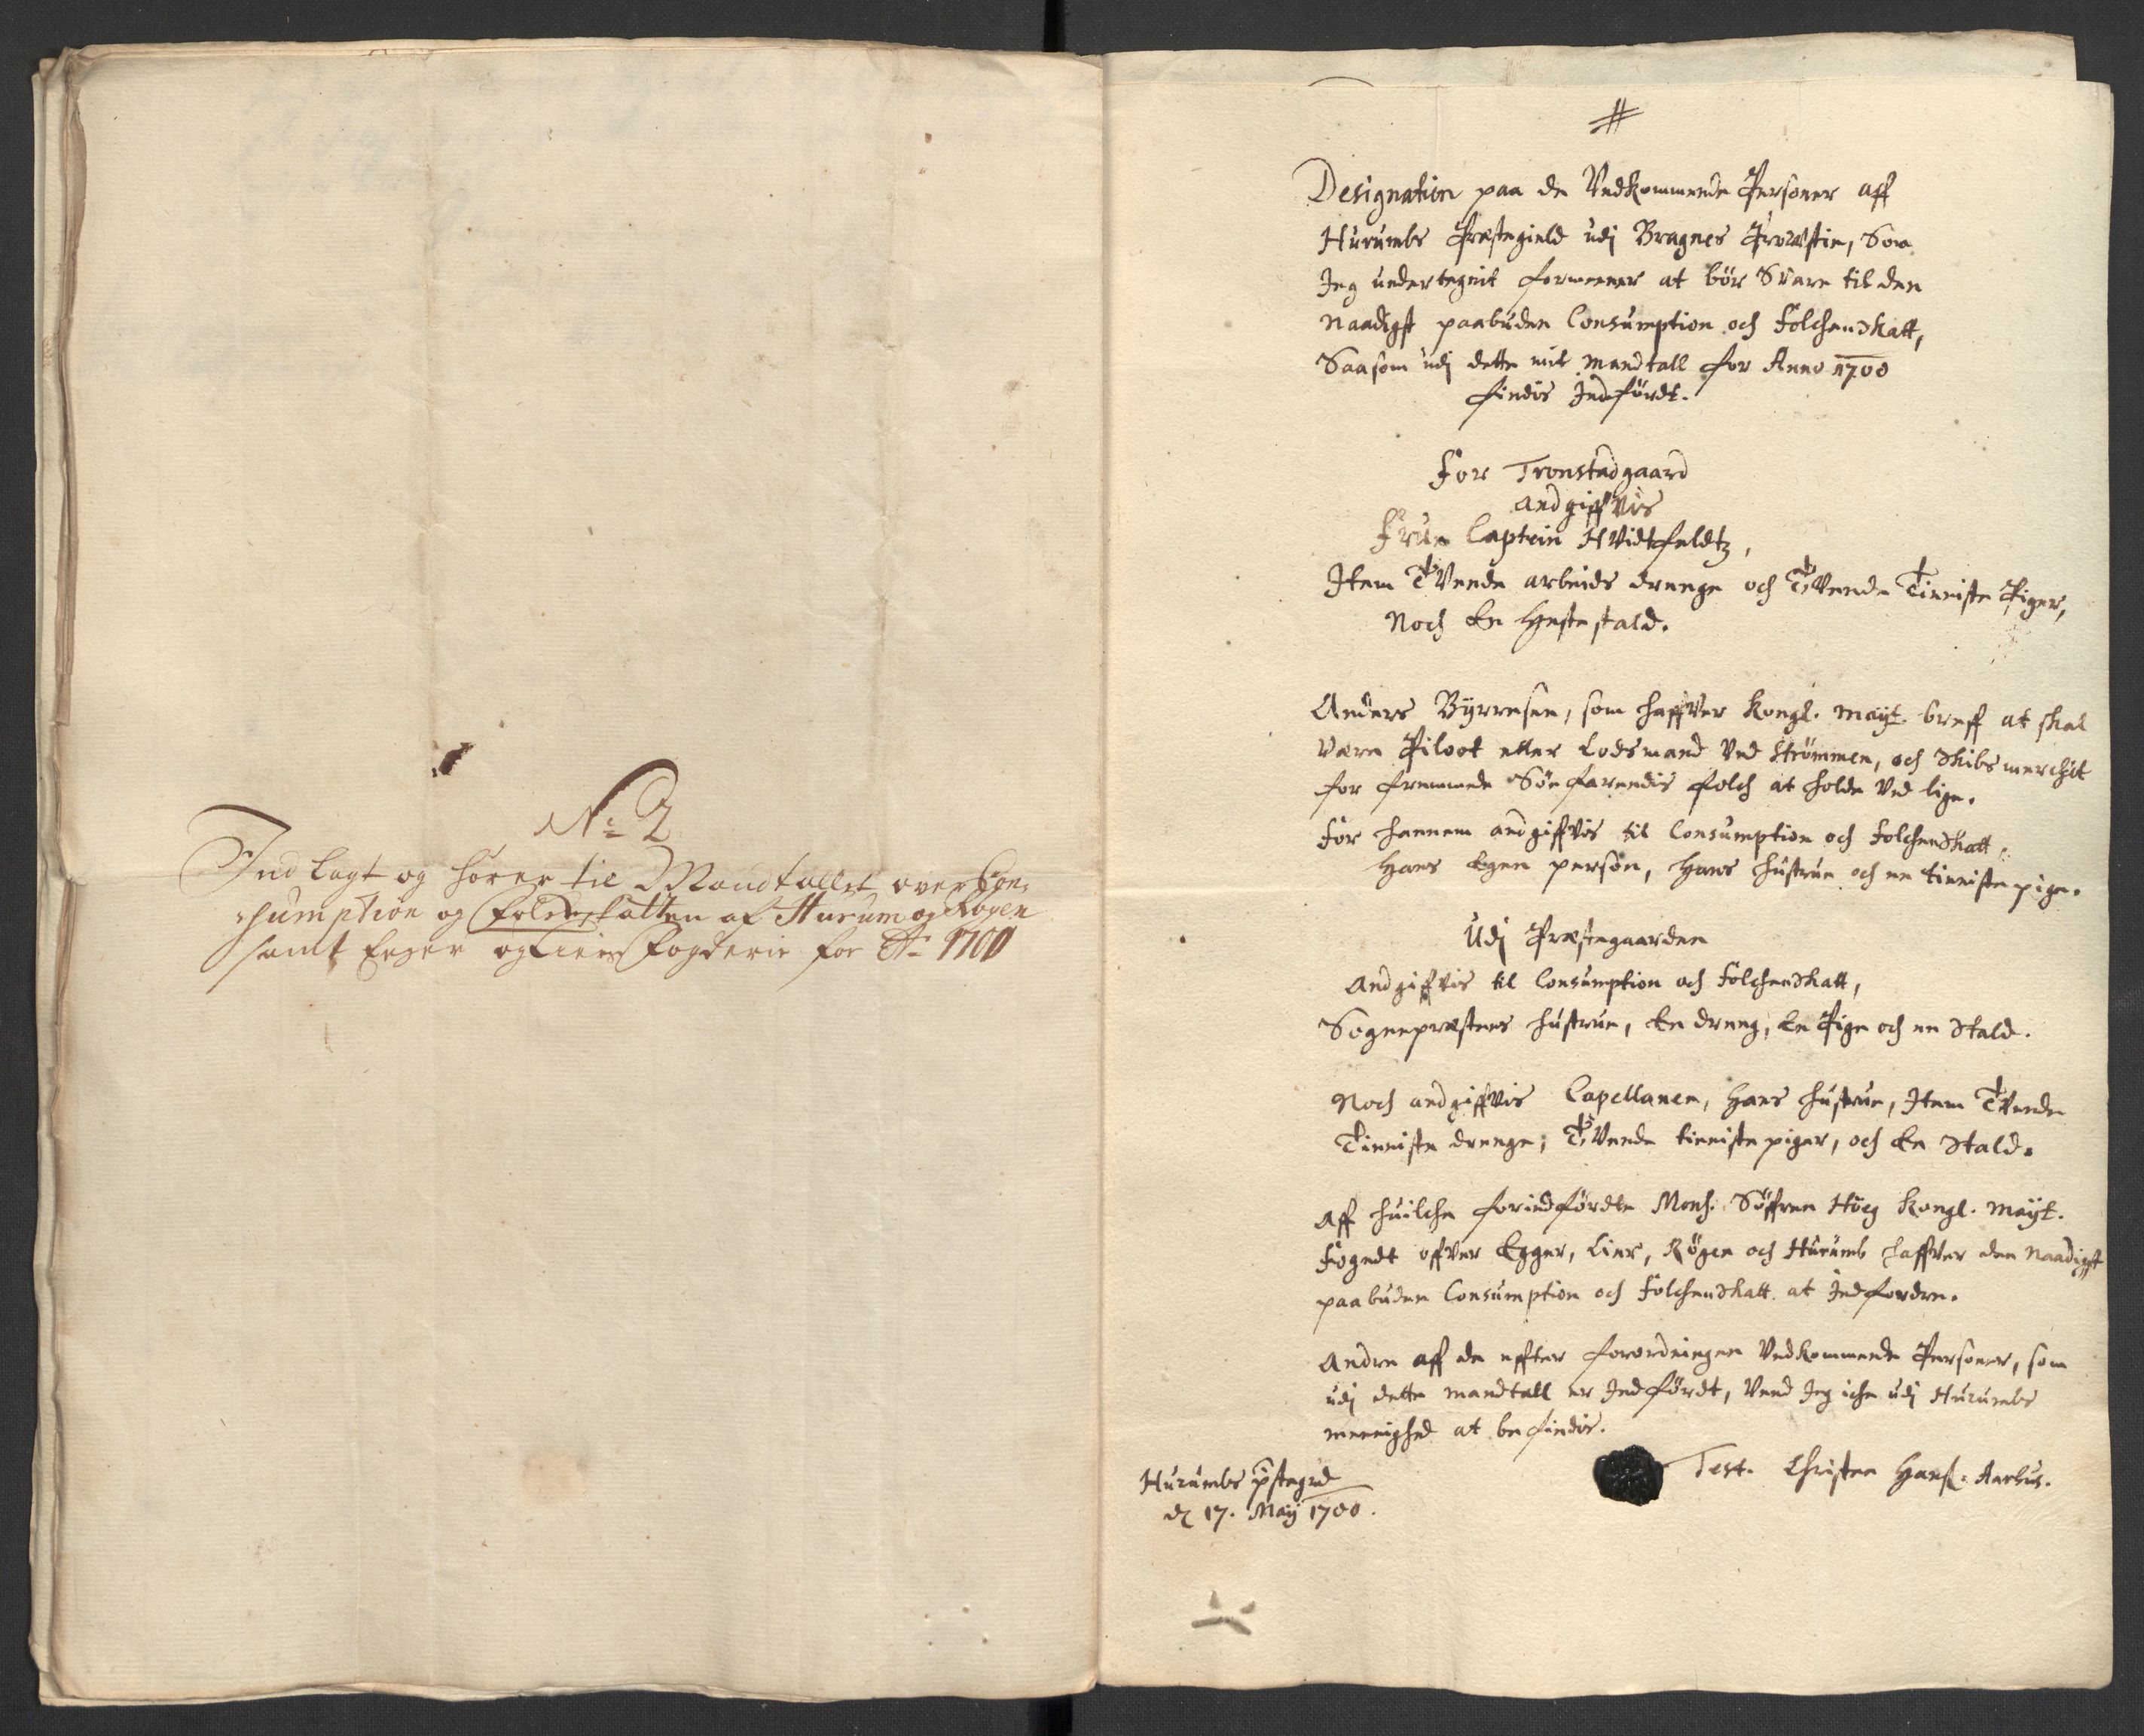 No 2
Indlagt og hører til Mandtallet over Con-
sumption og Folcheskatten af Hurum og Røgen
samt Eeger og Liers Fogderie for Ao 1700
#
Designation paa de Vedkommende Personer aff
Hurumbs Præstegield udj Bragnes Prowstie, Som
Jeg undertegnit formeener at bör Svare til den
Naadigst paabuden Consumption och Folcheskatt,
Saasom udj dette mit Mandtall for Anno 1700
findis Indfördt.
For Tronstadgaard
andgiffvis
Frue Captein Hvidtfeldtz,
Item Tvende arbeids drenge och Tvende Tieniste Piger,
Noch En Hestestald.
Anders Byrresen, som haffver Kongl. Mayt. breff at skal
være Piloot eller Lodsmand Ved Strømmen, och Skibsmerchit
for fremmede Söefarendis folch at holde Ved lige.
For hannem andgiffvis til Consumption och Folcheskatt:
Hans Egen person, Hans hustrue och en tienistepige.
Udj Præstegaarden
Andgiffvis til Consumption och Folcheskatt,
Sognepræstens hustrue, En dreng, En Pige och en Stald.
Noch andgiffvis Capellanen, Hans hustrue, Item Tvende
Tieniste drenge, Tvende tieniste piger, och En Stald.
Aff huilche forindfördte Mons. Söffren Höeg Kongl. Mayt.
Fogedt offver Egger, Lier, Rögen och Hurumb haffver den Naadigst
paabuden Consumption och Folcheskatt at Indfordre.
Andre aff de effter forordningen Vedkommende Personer, som
udj dette mandtall er Indfördt, Veed Jeg iche udj Hurumbs
meenighed at befindis.
Hurumbs pstegrd
d 17. Maij 1700.
Test. Christen Hanss: Aarhus.